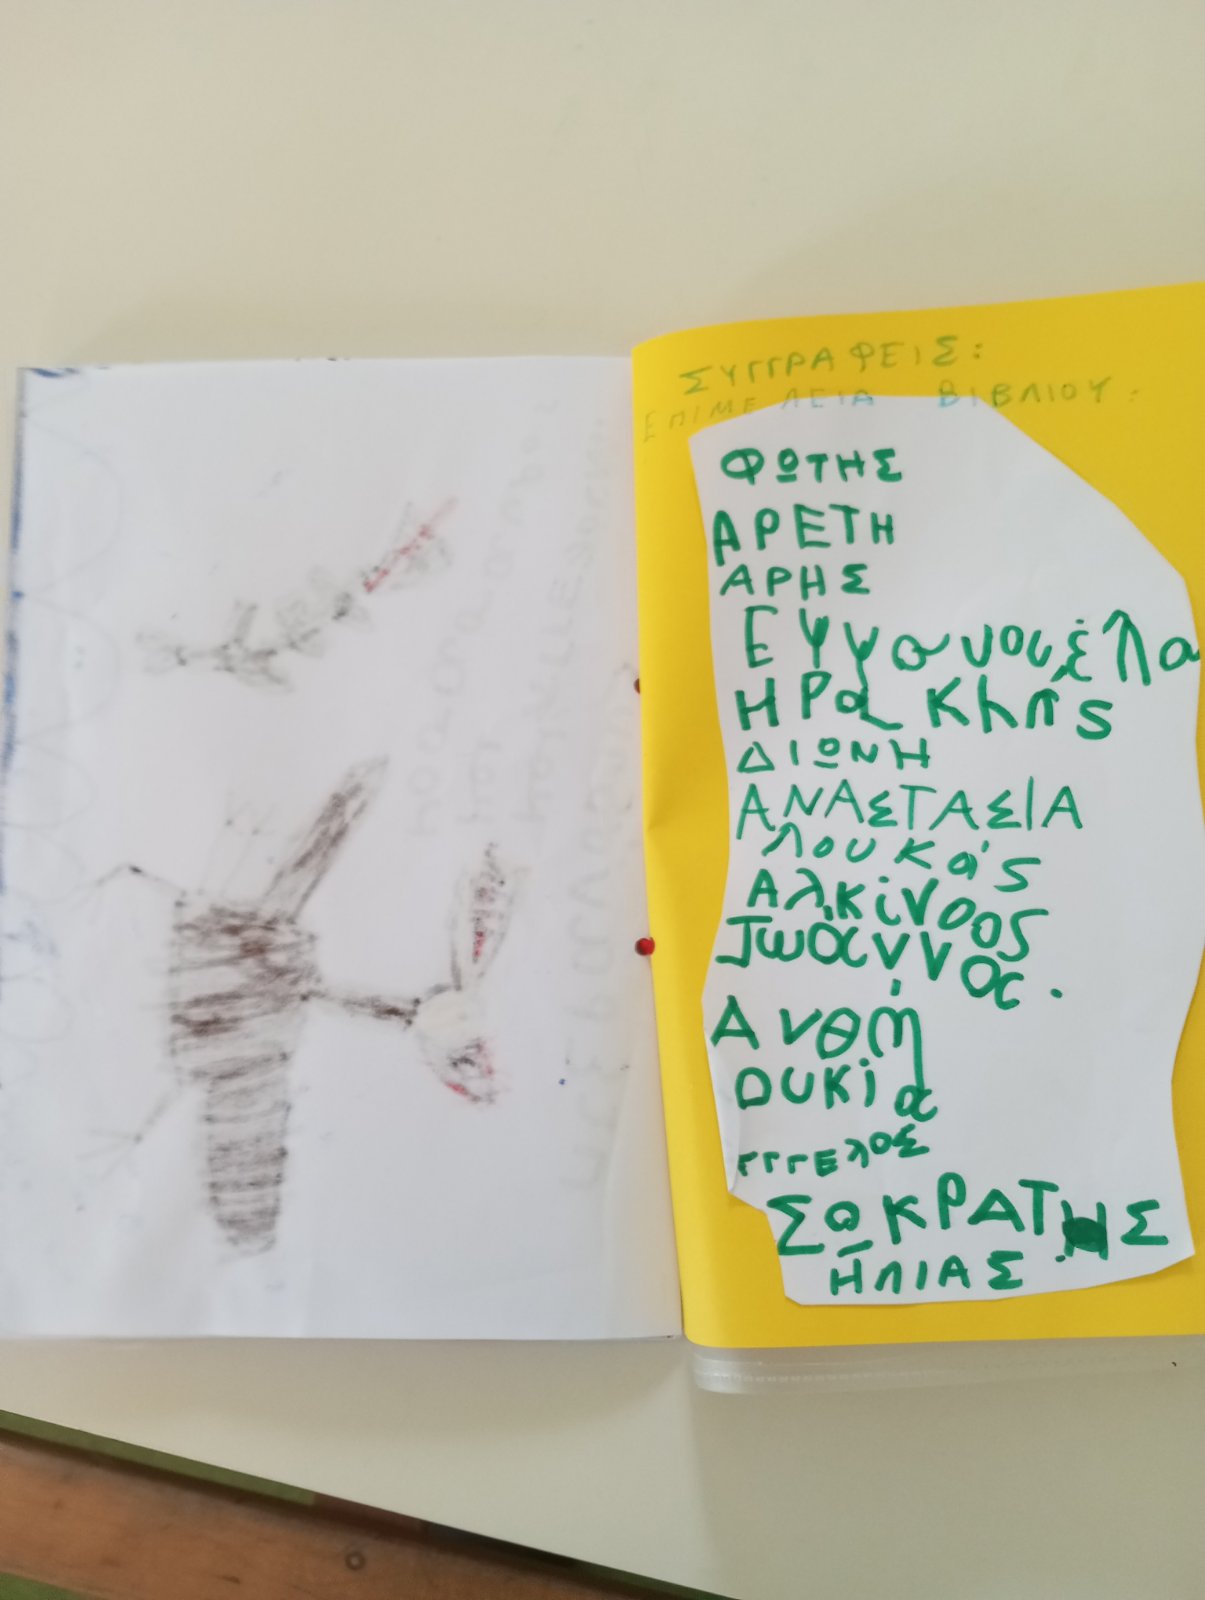 ΣΥΓΓΡΑΦΕΙΣ:
ΕΠΙΜΕΛΕΙΑ ΒΙΒΛΙΟΥ:
ΦΩΤΗΣ
ΑΡΕΤΗ
ΑΡΗΣ
ΗΡακλής
ΔΙΩΝΗ
ΑΝΑΣΤΑΣΙΑ
λουκάς
Αλκίνοος
Ιωάννα.
Ανθή
ουκία
γγελος
ΣΩΚΡΑΤΗΣ
ΗΛΙΑΣ